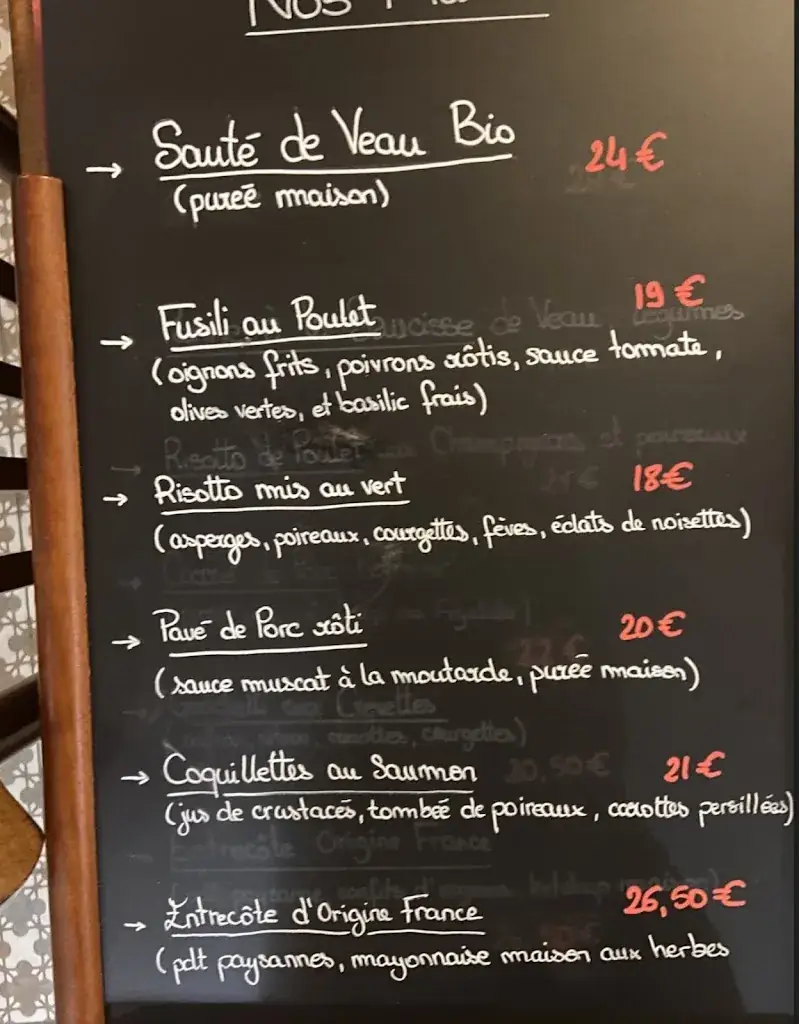 Nos
→ Sauté de Veau Bio 24 €
(pureé maison)
→ Fusili au Poulet 19 €
(oignons frits, poivrons rôtis, sauce tommate,
olives vertes, et basilic frais)
→ Risotto mis au vert 18€
(asperges, poireaux, courgettes, fèves, éclats de noisettes)
→ Pavé de Porc rôti 20€
(sauce muscat à la moutarde, purée maison)
→ Coquillettes au Saumon 21€
(jus de crustacés, tombeé de poireaux, carottes persillées)
→ Entrecôte d'Origine France 26,50€
(pdt paysannes, mayonnaise maison aux herbes